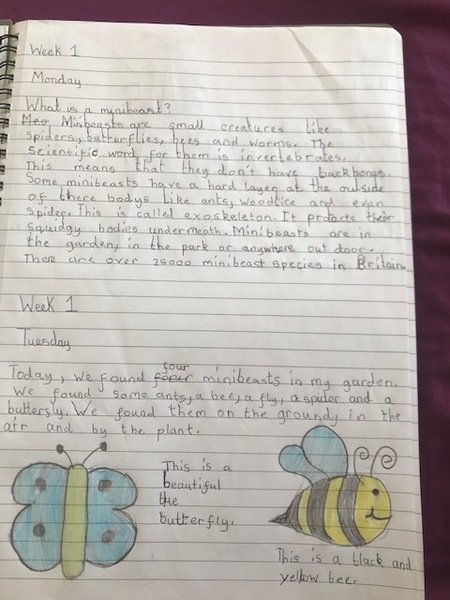 Week 1
Monday
What is a minibeast?
Meo Minibeasts are small creatures like
spiders, butterflies, bees and worms. The
scientific word for them is invertebrates.
This means that they don't have backbones.
Some minibeasts have a hard layer at the outside
of there bodys like ants, woodlice and even
spider. This is called exoskeleton. It protects their
squidgy bodies underneath. Minibeasts are in
the garden, in the park or anywhere out door.
There are over 25000 minibeast species in Britain.
Week 1
Tuesday
four
Today, we found four minibeasts in my garden.
We found some ants, a bee, a fly, a spider and a
butterfly. We found them on the ground, in the
air and by the plant.
This is a
beautiful
blue
butterfly.
This is a black and
yellow bee.